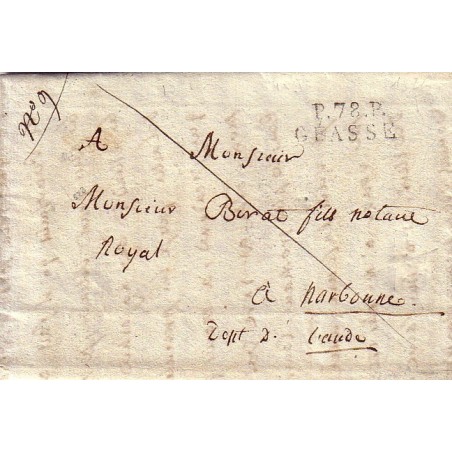 N° 9
P.78.P.
GRASSE
A Monsieur
Monsieur Birat fils notaire
Royal
à Narbonne
Dept De l'aude